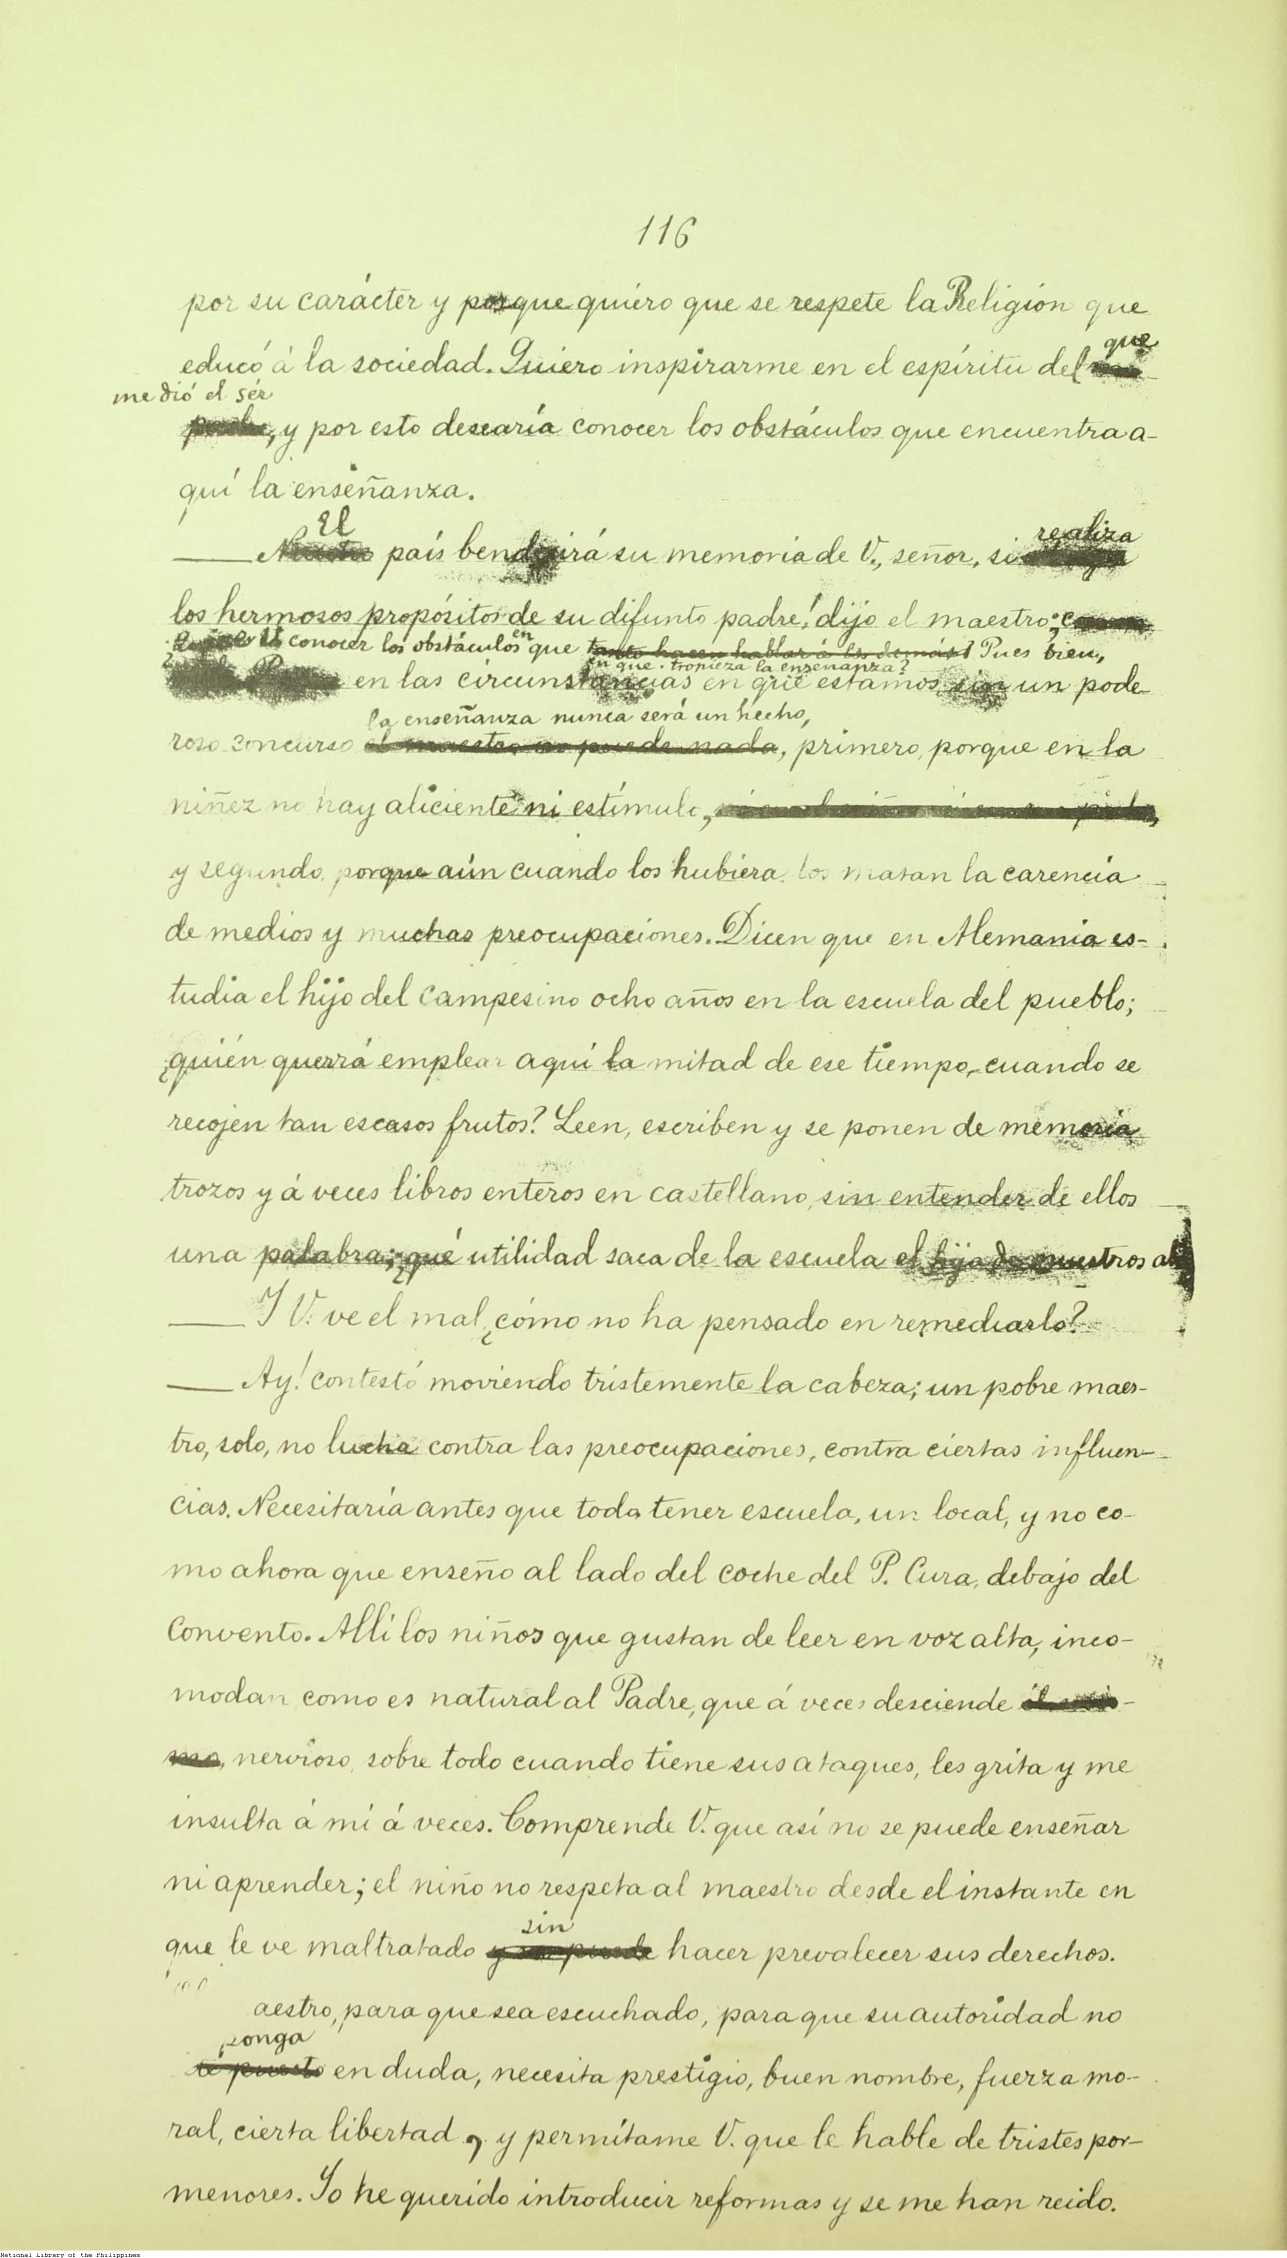 116
por su carácter y porque quiero que se respete la Religión que
educó á la sociedad. Quiero inspirarme en el espíritu del que
me dió el sér
padre, y por esto desearía conocer los obstáculos que encuentra a-
quí la enseñanza.
El
— Nuestro país bendecirá su memoria de V., señor, si realiza
los hermosos propósitos de su difunto padre! dijo el maestro;
¿Quiere V. conocer los obstáculos en que tanto hacen hablar á los demás? Pues bien,
en que tropieza la enseñanza?
en las circunstancias en que estamos, sin un pode-
la enseñanza nunca será un hecho,
roso concurso el maestro no puede nada, primero, porque en la
niñez no hay aliciente ni estímulo,
y segundo, porque aún cuando los hubiera, los matan la carencia
de medios y muchas preocupaciones. Dicen que en Alemania es-
tudia el hijo del campesino ocho años en la escuela del pueblo;
¿quién querrá emplear aquí la mitad de ese tiempo, cuando se
recojen tan escasos frutos? Leen, escriben y se ponen de memoria
trozos y á veces libros enteros en castellano, sin entender de ellos
una palabra; ¿qué utilidad saca de la escuela el hijo de nuestros al
— Y V. ve el mal, ¿cómo no ha pensado en remediarlo?
— Ay! contestó moviendo tristemente la cabeza; un pobre maes-
tro, solo, no lucha contra las preocupaciones, contra ciertas influen-
cias. Necesitaría antes que todo tener escuela, un local, y no co-
mo ahora que enseño al lado del coche del P. Cura, debajo del
convento. Allí los niños que gustan de leer en voz alta, inco-
modan como es natural al Padre, que á veces desciende
nervioso, sobre todo cuando tiene sus ataques, les grita y me
insulta á mí á veces. Comprende V. que así no se puede enseñar
ni aprender; el niño no respeta al maestro desde el instante en
sin
que le ve maltratado y sin puede hacer prevalecer sus derechos.
aestro, para que sea escuchado, para que su autoridad no
ponga
puesto en duda, necesita prestigio, buen nombre, fuerza mo-
ral, cierta libertad, y permítame V. que le hable de tristes por-
menores. Yo he querido introducir reformas y se me han reido.
National Library of the Philippines